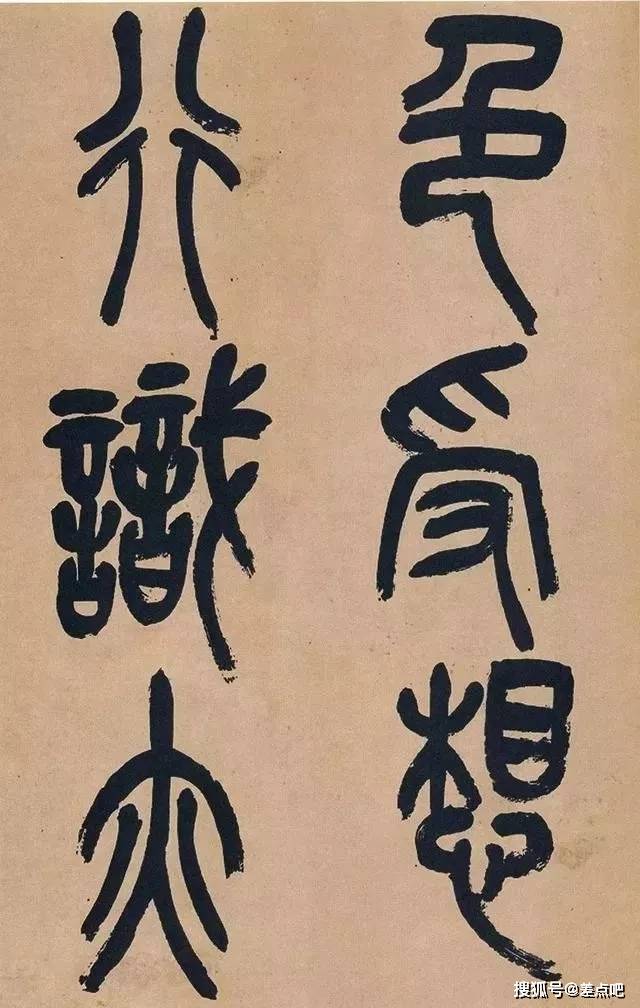 色受想
行識亦
搜狐号@差点吧